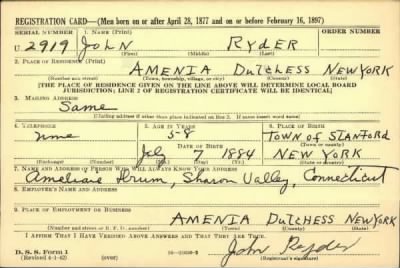 REGISTRATION CARD—(Men born on or after April 28, 1877 and on or before February 16, 1897)
SERIAL NUMBER 1. NAME (Print) ORDER NUMBER
U 2919 John Ryder
(First) (Middle) (Last)
2. PLACE OF RESIDENCE (Print)
AMENIA Dutchess NEW YORK
(Number and street) (Town, township, village, or city) (County) (State)
[THE PLACE OF RESIDENCE GIVEN ON THE LINE ABOVE WILL DETERMINE LOCAL BOARD
JURISDICTION; LINE 2 OF REGISTRATION CERTIFICATE WILL BE IDENTICAL]
3. MAILING ADDRESS
Same
[Mailing address if other than place indicated on line 2. If same insert word same]
4. TELEPHONE 5. AGE IN YEARS 6. PLACE OF BIRTH
none 58 Town of Stanford
DATE OF BIRTH (Town or county)
July 7 1884 NEW YORK
(Exchange) (Number) (Mo.) (Day) (Yr.) (State or country)
7. NAME AND ADDRESS OF PERSON WHO WILL ALWAYS KNOW YOUR ADDRESS
Drum, Sharon Valley, Connecticut
8. EMPLOYER'S NAME AND ADDRESS
9. PLACE OF EMPLOYMENT OR BUSINESS
AMENIA DUTCHESS NEW YORK
(Number and street or R. F. D. number) (Town) (County) (State)
I AFFIRM THAT I HAVE VERIFIED ABOVE ANSWERS AND THAT THEY ARE TRUE.
D. S. S. Form 1
(Revised 4-1-42) (over)
John Ryder
(Registrant's signature)